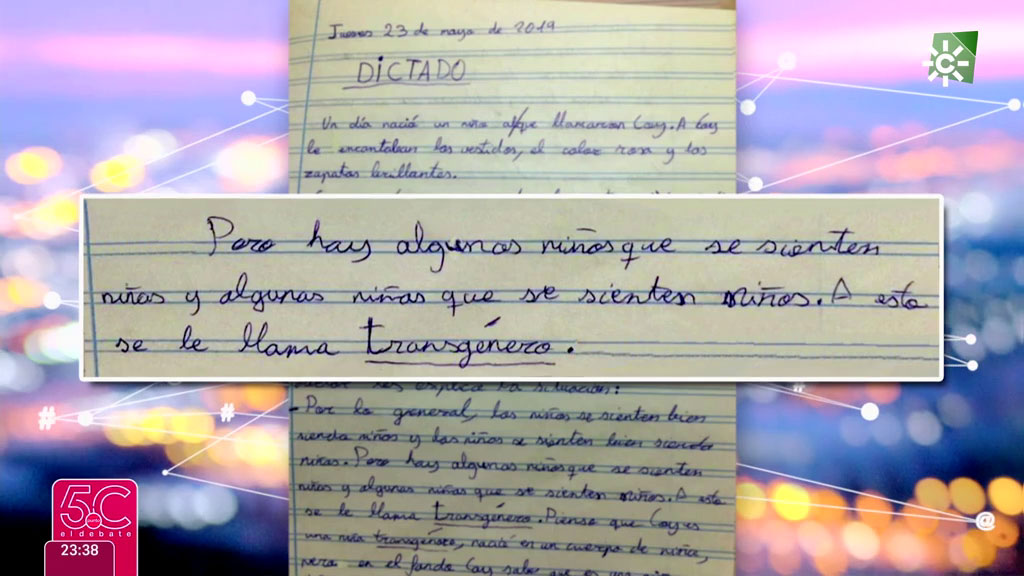 Jueves 23 de mayo de 2019
DICTADO
Un día nació un niño al que llamaron Coy. A Coy
le encantaban los vestidos, el color rosa y los
zapatos brillantes.
Pero hay algunos niños que se sienten
niñas y algunas niñas que se sienten niños. A esto
se le llama transgénero.
les explicó la situación:
- Por lo general, los niños se sienten bien
siendo niños y las niñas se sienten bien siendo
niñas. Pero hay algunos niños que se sienten
niñas y algunas niñas que se sienten niños. A esto
se le llama transgénero. Pienso que Coy es
una niña transgénero, nació en un cuerpo de niño,
pero en el fondo Coy sabe que es una
5C
punto
el debate
23:38
C
#
#
#
@